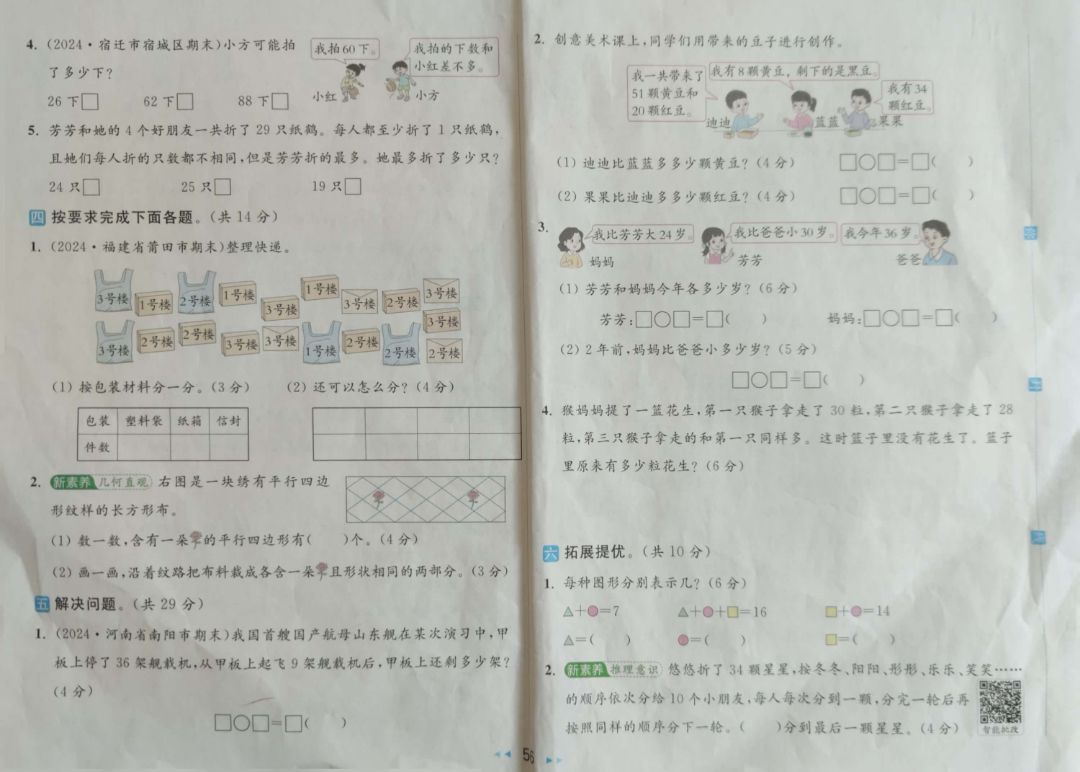 4.(2024·宿迁市宿城区期末)小方可能拍
了多少下?
我拍60下。
我拍的下数和
小红差不多。
小红
小方
26下□ 62下□ 88下□
5. 芳芳和她的4个好朋友一共折了29只纸鹤。每人都至少折了1只纸鹤,
且她们每人折的只数都不相同,但是芳芳折的最多。她最多折了多少只?
24只□ 25只□ 19只□
四 按要求完成下面各题。(共14分)
1.(2024·福建省莆田市期末)整理快递。
3号楼 1号楼 2号楼 1号楼 3号楼 1号楼 3号楼 2号楼 3号楼
3号楼
3号楼 2号楼 2号楼 3号楼 3号楼 1号楼 2号楼 2号楼 2号楼
(1) 按包装材料分一分。(3分) (2) 还可以怎么分?(4分)
包装 塑料袋 纸箱 信封
件数
2. 新素养 几何直观 右图是一块绣有平行四边
形纹样的长方形布。
(1) 数一数,含有一朵的平行四边形有( )个。(4分)
(2) 画一画,沿着纹路把布料裁成各含一朵且形状相同的两部分。(3分)
五 解决问题。(共29分)
1.(2024·河南省南阳市期末)我国首艘国产航母山东舰在某次演习中,甲
板上停了36架舰载机,从甲板上起飞9架舰载机后,甲板上还剩多少架?
(4分)
□○□=□( )
2. 创意美术课上,同学们用带来的豆子进行创作。
我一共带来了
51颗黄豆和
20颗红豆。
我有8颗黄豆,剩下的是黑豆。
我有34
颗红豆。
迪迪
蓝蓝
果果
(1) 迪迪比蓝蓝多多少颗黄豆?(4分) □○□=□( )
(2) 果果比迪迪多多少颗红豆?(4分) □○□=□( )
3.
我比芳芳大24岁。
我比爸爸小30岁。
我今年36岁。
妈妈
芳芳
爸爸
(1) 芳芳和妈妈今年各多少岁?(6分)
芳芳:□○□=□( ) 妈妈:□○□=□( )
(2) 2年前,妈妈比爸爸小多少岁?(5分)
□○□=□( )
4. 猴妈妈提了一篮花生,第一只猴子拿走了30粒,第二只猴子拿走了28
粒,第三只猴子拿走的和第一只同样多。这时篮子里没有花生了。篮子
里原来有多少粒花生?(6分)
六 拓展提优。(共10分)
1. 每种图形分别表示几?(6分)
△+○=7 △+○+□=16 □+○=14
△=( ) ○=( ) □=( )
2. 新素养 推理意识 悠悠折了34颗星星,按冬冬、阳阳、彤彤、乐乐、笑笑……
的顺序依次分给10个小朋友,每人每次分到一颗,分完一轮后再
按照同样的顺序分下一轮。( )分到最后一颗星星。(4分)
智能批改
56